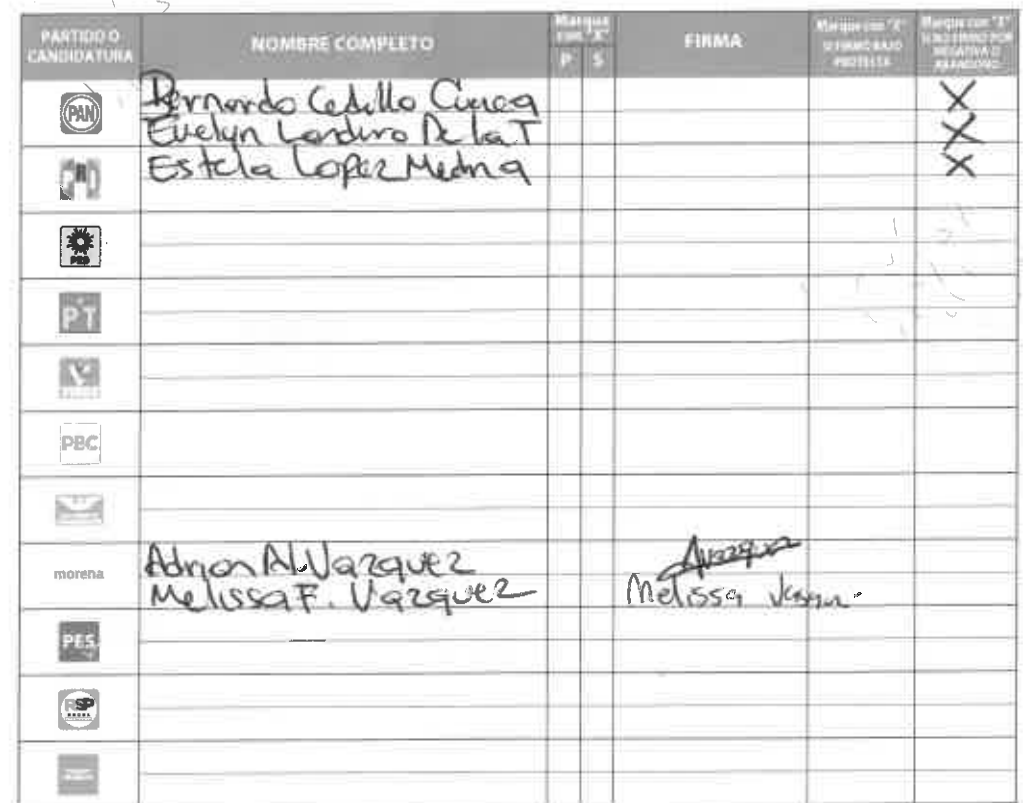 PARTIDO O CANDIDATURA NOMBRE COMPLETO Marque con "X" P S FIRMA Marque con "X" SI FIRMÓ BAJO PROTESTA Marque con "X" SI NO FIRMÓ POR NEGATIVA O ABANDONO
PAN Bernardo Cedillo Cuenca X
Evelyn Landero De la T X
PRI Estela Lopez Medina X
PRD
PT
VERDE
PBC
morena Adrian Al. Vazquez
Melissa F. Vazquez Melissa
PES
RSP